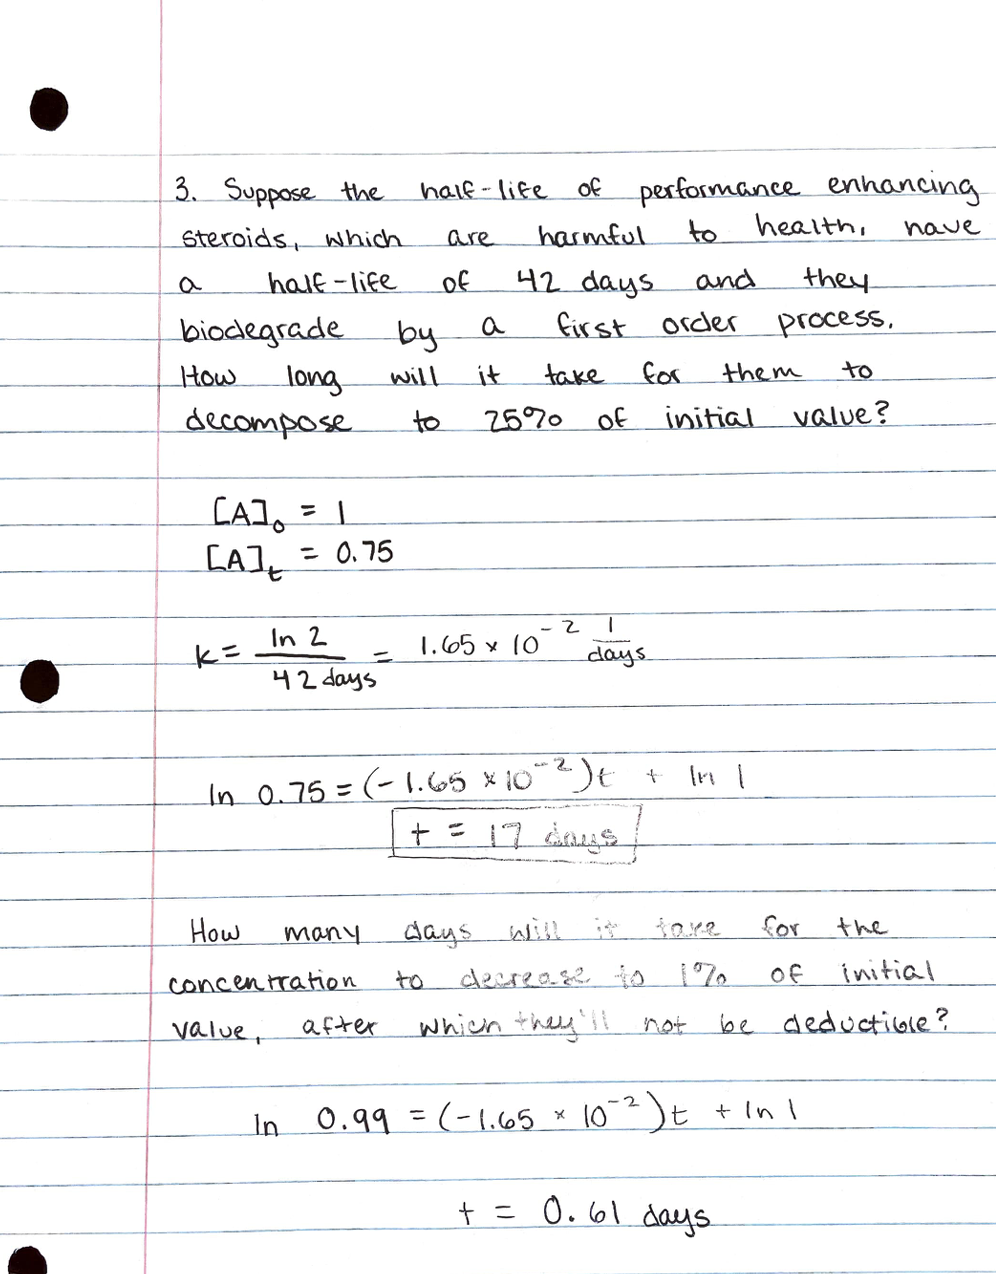 3. Suppose the half-life of performance enhancing
steroids, which are harmful to health, have
a half-life of 42 days and they
biodegrade by a first order process.
How long will it take for them to
decompose to 25% of initial value?
[A]₀ = 1
[A]ₜ = 0.75
k = ln 2 / 42 days = 1.65 × 10⁻² 1/days
ln 0.75 = (-1.65 × 10⁻²)t + ln 1
t = 17 days
How many days will it take for the
concentration to decrease to 1% of initial
value, after which they'll not be deductible?
ln 0.99 = (-1.65 × 10⁻²)t + ln 1
t = 0.61 days